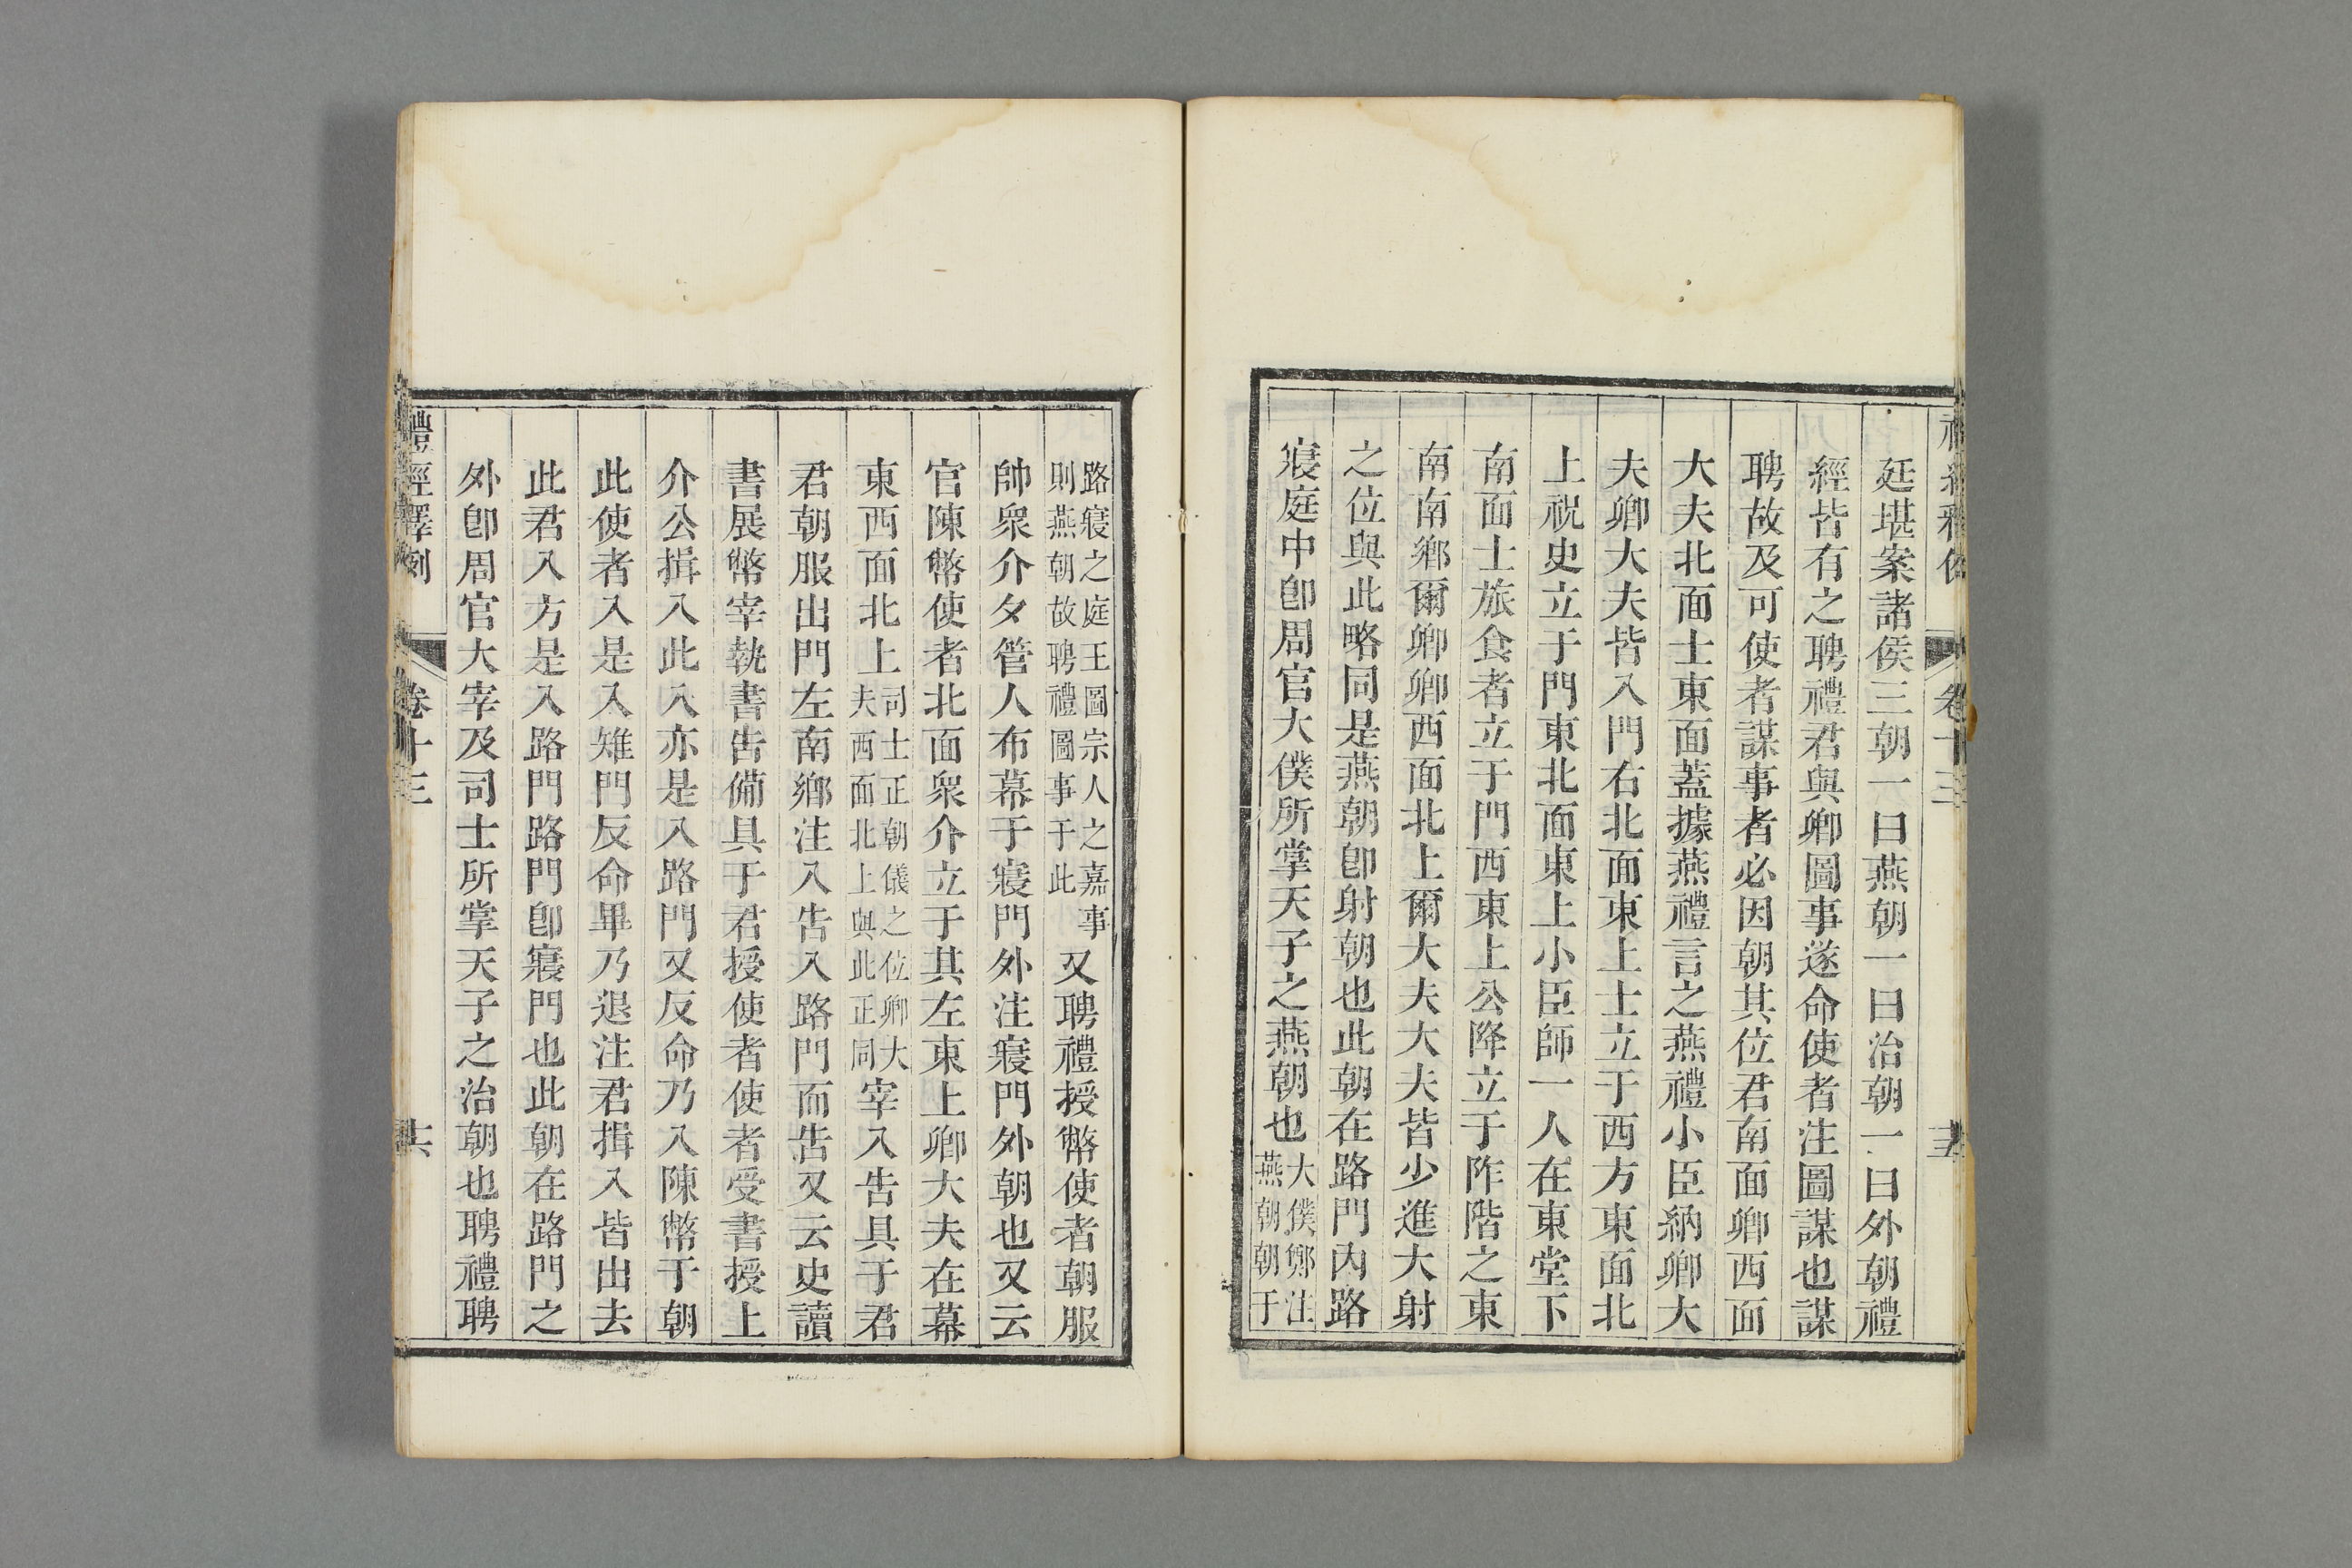 禮經釋例
卷十三
十五
廷堪案諸侯三朝一曰燕朝一曰治朝一曰外朝禮
經皆有之聘禮君與卿圖事遂命使者注圖謀也謀
聘故及可使者謀事者必因朝其位君南面卿西面
大夫北面士東面蓋據燕禮言之燕禮小臣納卿大
夫卿大夫皆入門右北面東上士立于西方東面北
上祝史立于門東北面東上小臣師一人在東堂下
南面士旅食者立于門西東上公降立于阼階之東
南南鄉爾卿卿西面北上爾大夫大夫皆少進大射
之位與此略同是燕朝卽射朝也此朝在路門內路
寢庭中卽周官大僕所掌天子之燕朝也
大僕鄭注
燕朝朝于
路寢之庭王圖宗人之嘉事
則燕朝故聘禮圖事于此
又聘禮授幣使者朝服
帥眾介夕管人布幕于寢門外注寢門外朝也又云
官陳幣使者北面眾介立于其左東上卿大夫在幕
東西面北上
司士正朝儀之位卿大
夫西面北上與此正同
宰入告具于君
君朝服出門左南鄉注入告入路門而告又云史讀
書展幣宰執書告備具于君授使者使者受書授上
介公揖入此入亦是入路門又反命乃入陳幣于朝
此使者入是入雉門反命畢乃退注君揖入皆出去
此君入方是入路門路門卽寢門也此朝在路門之
外卽周官大宰及司士所掌天子之治朝也聘禮聘
禮經釋例
卷十三
十六